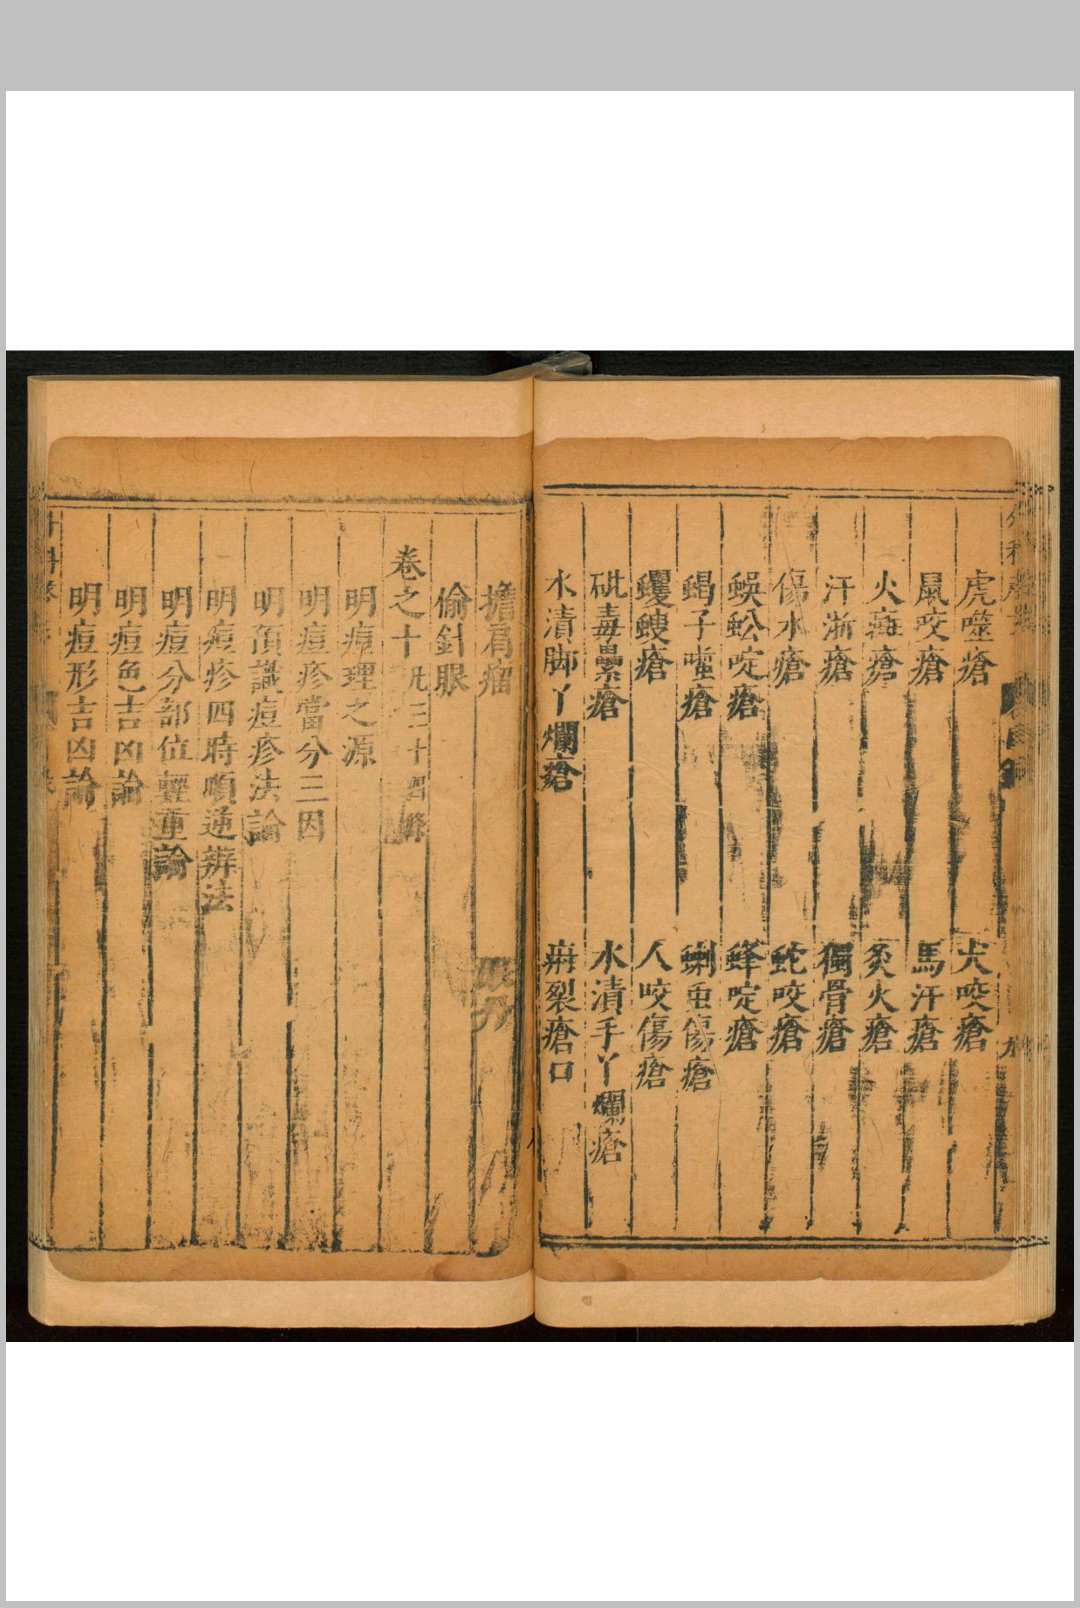 虎噬瘡
犬咬瘡
鼠咬瘡
馬汗瘡
火瘢瘡
灸火瘡
汗淅瘡
獨骨瘡
傷水瘡
蛇咬瘡
蜈蚣啶瘡
蜂啶瘡
蝎子螫瘡
蝲垂傷瘡
蠼螋瘡
人咬傷瘡
砒毒瘡
水漬手丫爛瘡
水漬脚丫爛瘡
裂瘡口
擔肩瘤
偷針眼
卷之十 凡三十四條
明痘理之源
明痘疹當分三因
明預識痘疹法論
明痘疹四時順逆辨法
明痘分部位輕重論
明痘色吉凶論
明痘形吉凶論